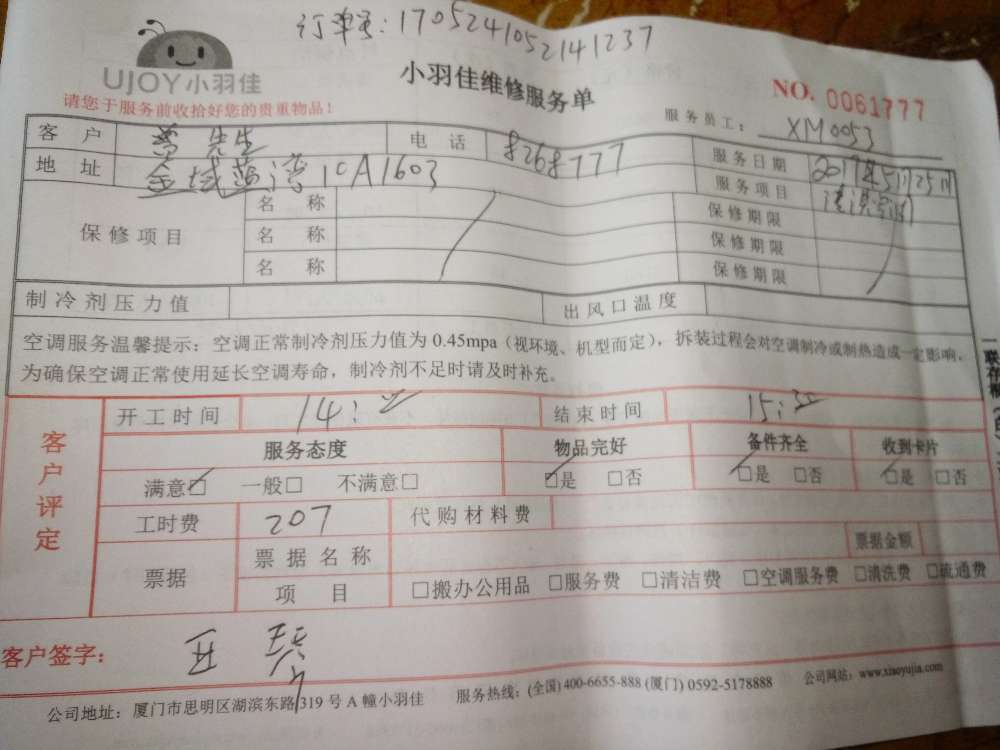 订单号:1705241052141237
UJOY小羽佳
小羽佳维修服务单
NO. 0061777
请您于服务前收拾好您的贵重物品!
服务员工: XM0053
客户 曾先生 电话 8268777 服务日期 2017年5月25日
地址 金域蓝湾10A1603 服务项目
保修项目 名称 保修期限
名称 保修期限
名称 保修期限
制冷剂压力值 出风口温度
空调服务温馨提示:空调正常制冷剂压力值为 0.45mpa(视环境、机型而定),拆装过程会对空调制冷或制热造成一定影响,
为确保空调正常使用延长空调寿命,制冷剂不足时请及时补充。
客户评定
开工时间 14: 结束时间 15:
服务态度 物品完好 备件齐全 收到卡片
满意☑ 一般□ 不满意□ ☑是 □否 ☑是 □否 ☑是 □否
工时费 207 代购材料费
票据 票据名称 票据金额
项目 □搬办公用品 □服务费 □清洁费 □空调服务费 □清洗费 □疏通费
客户签字:
公司地址:厦门市思明区湖滨东路319号A幢小羽佳 服务热线:(全国)400-6655-888 (厦门) 0592-5178888 公司网站:www.xiaoyujia.com